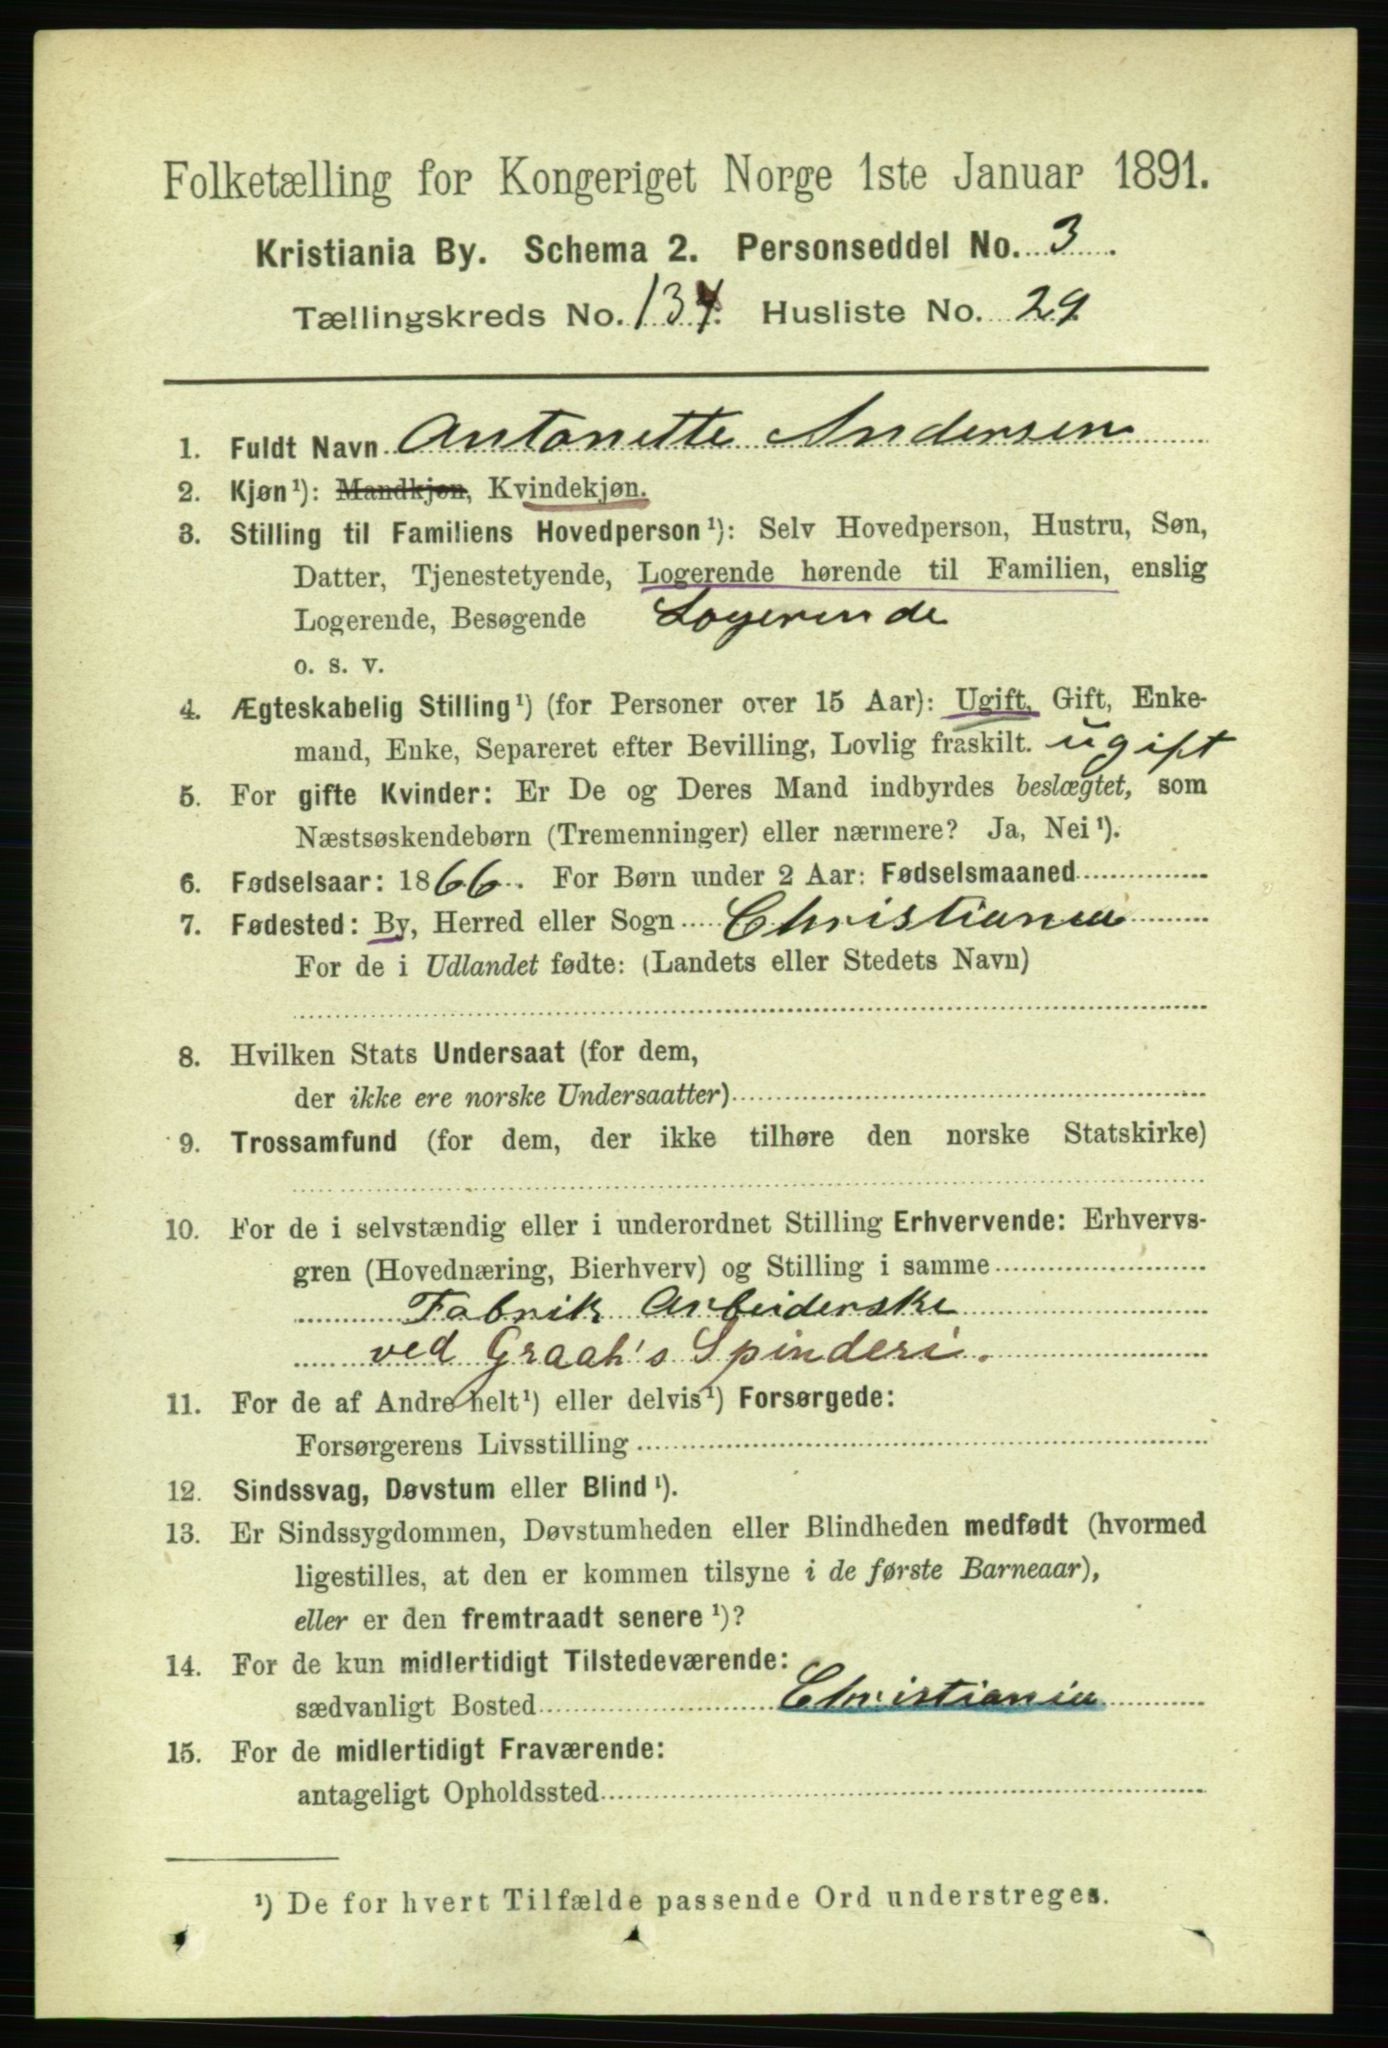 Folketælling for Kongeriget Norge 1ste Januar 1891.
Kristiania By. Schema 2. Personseddel No. 3.
Tællingskreds No. 134. Husliste No. 29
1. Fuldt Navn Antonette Andersen
2. Kjøn¹): Mandkjøn, Kvindekjøn.
3. Stilling til Familiens Hovedperson¹): Selv Hovedperson, Hustru, Søn,
Datter, Tjenestetyende, Logerende hørende til Familien, enslig
Logerende, Besøgende Logerende
o. s. v.
4. Ægteskabelig Stilling¹) (for Personer over 15 Aar): Ugift, Gift, Enke-
mand, Enke, Separeret efter Bevilling, Lovlig fraskilt. ugift
5. For gifte Kvinder: Er De og Deres Mand indbyrdes beslægtet, som
Næstsøskendebørn (Tremenninger) eller nærmere? Ja, Nei¹).
6. Fødselsaar: 1866. For Børn under 2 Aar: Fødselsmaaned
7. Fødested: By, Herred eller Sogn Christiania
For de i Udlandet fødte: (Landets eller Stedets Navn)
8. Hvilken Stats Undersaat (for dem,
der ikke ere norske Undersaatter)
9. Trossamfund (for dem, der ikke tilhøre den norske Statskirke)
10. For de i selvstændig eller i underordnet Stilling Erhvervende: Erhvervs-
gren (Hovednæring, Bierhverv) og Stilling i samme
Fabrik Arbeiderske
ved Graah's Spinderi.
11. For de af Andre helt¹) eller delvis¹) Forsørgede:
Forsørgerens Livsstilling
12. Sindssvag, Døvstum eller Blind¹).
13. Er Sindssygdommen, Døvstumheden eller Blindheden medfødt (hvormed
ligestilles, at den er kommen tilsyne i de første Barneaar),
eller er den fremtraadt senere¹)?
14. For de kun midlertidigt Tilstedeværende:
sædvanligt Bosted Christiania
15. For de midlertidigt Fraværende:
antageligt Opholdssted
¹) De for hvert Tilfælde passende Ord understreges.